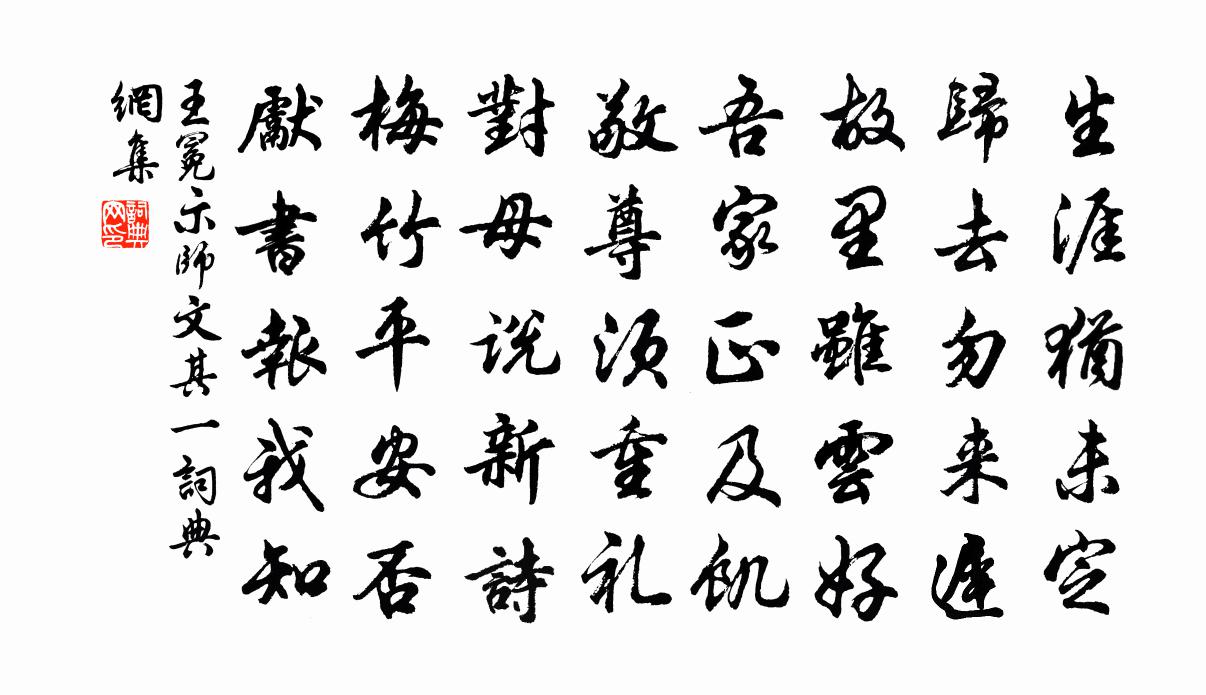 生涯猶未定
歸去勿来遲
故里雖雲好
吾家正及飢
敬尊須重礼
對母説新詩
梅竹平安否
獻書報我知
王冕示師文其一詞典
網集
詞典
网